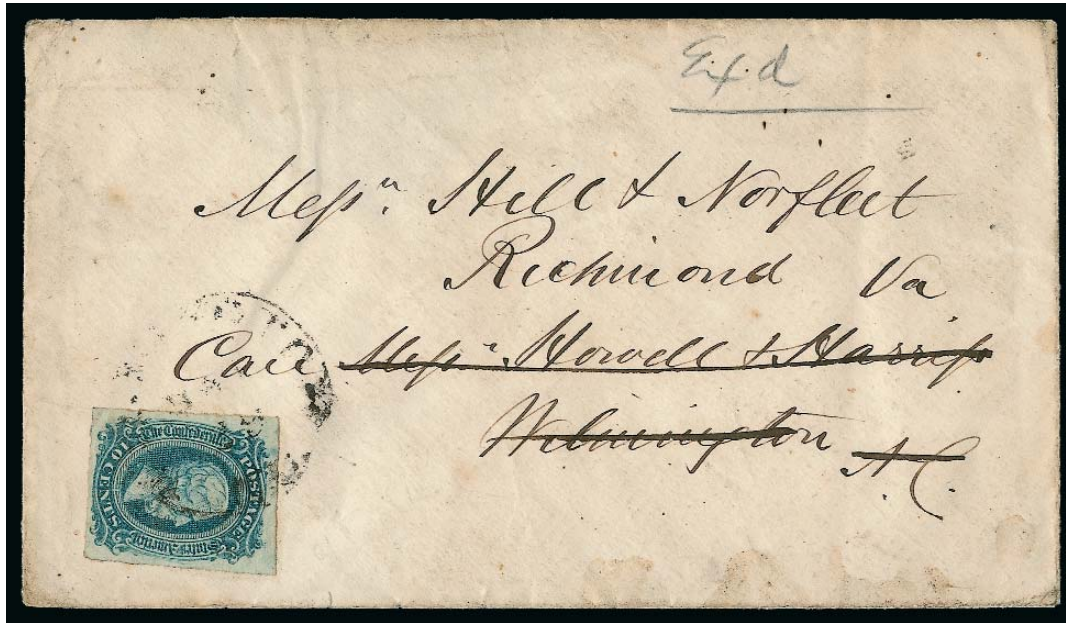 Ex.d
Messrs. Hill & Norfleet
Richmond Va
Care Messrs. Howell & Harriss
Wilmington N.C.
The Confederate
States America
POSTAGE
TEN CENTS